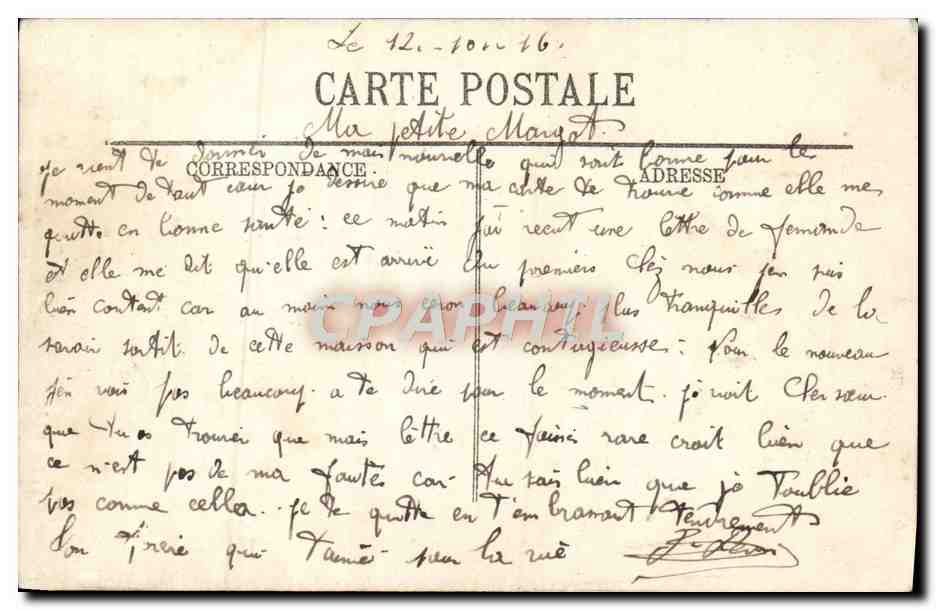 Le 12-10-16.
CARTE POSTALE
Ma petite Margot.
je vient de donner de mais nouvelle qui sont bonne pour le
CORRESPONDANCE ADRESSE
moment de tout cœur je dessire que ma carte te trouve comme elle me
quitte en bonne santé : ce matin j'ai recut une lettre de fernande
et elle me dit qu'elle est arrivé au premiers chéz nous j'en suis
bién content car au moin nous seron beaucoup plus tranquilles de la
savoir sortit de cette maison qui est contagieusse : Pour le nouveau
j'én vois pas beaucoup a te dire pour le moment. je voit Cher sœur
que tu as trouver que mais léttre ce faisai rare croit bién que
ce n'est pas de ma fautes car tu sais bien que je t'oublie
pas comme cella. je te quitte en t'embrassant tendrement
Ton frère qui t'aime pour la vie
CPAPHIL